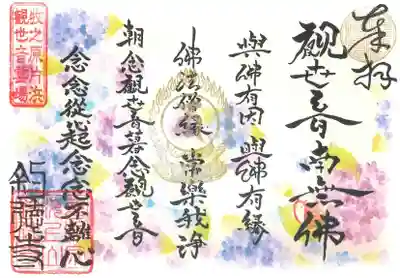 奉拝
觀世音南無佛
與佛有因與佛有縁
佛法僧縁常樂我浄
朝念觀世音暮念觀世音
念念從起念念不離心
牧之原片浜
観世音霊場